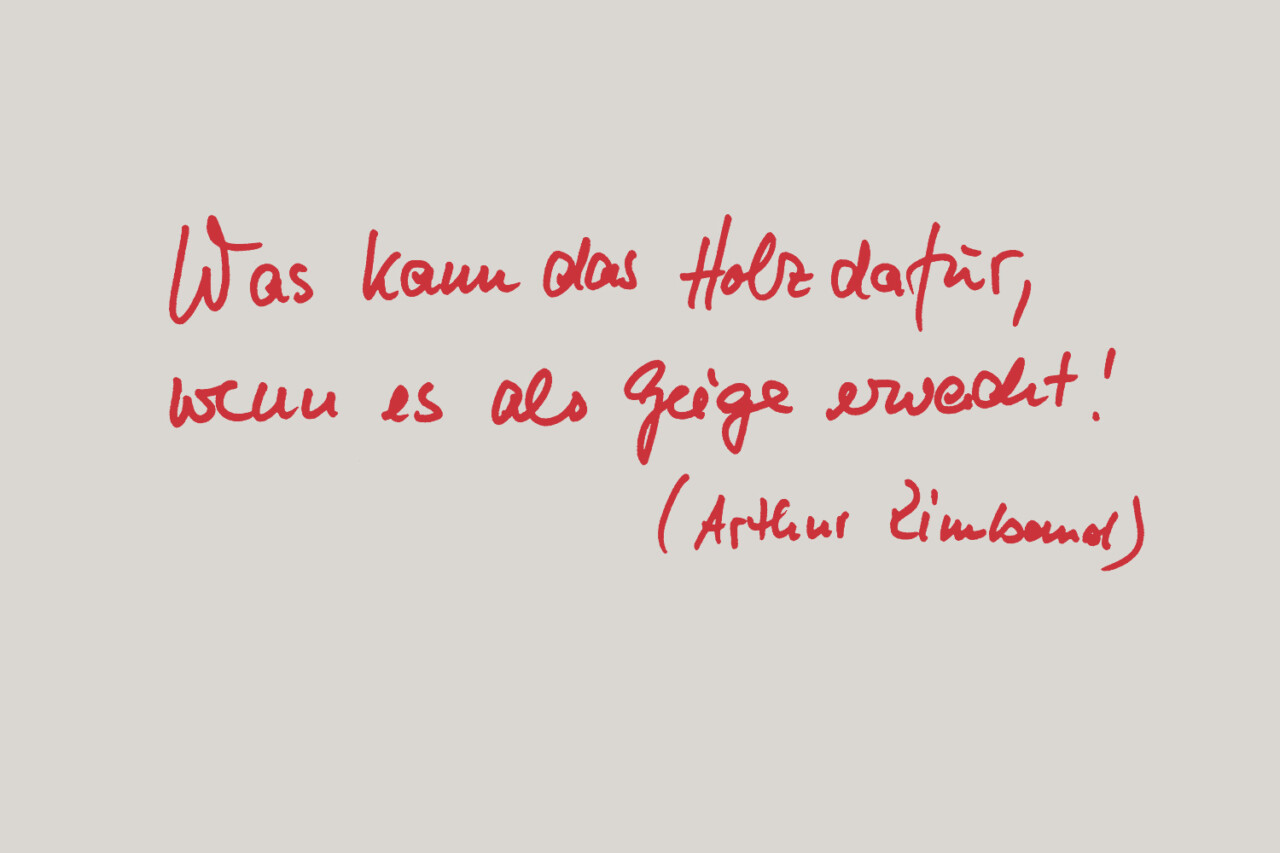 Was kann das Holz dafür,
wenn es als Geige erwacht!
(Arthur